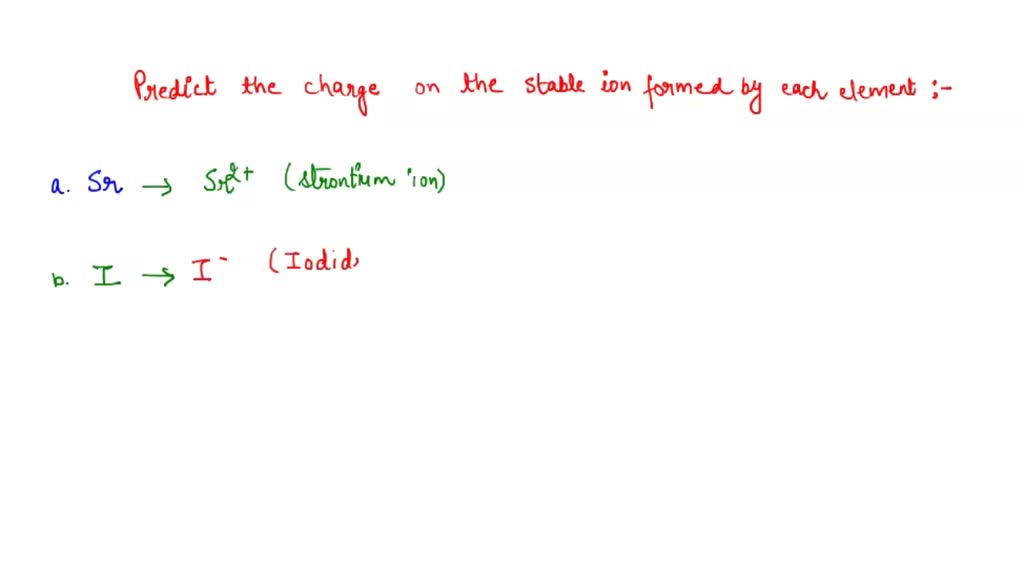 Predict the charge on the stable ion formed by each element :-
a. Sr → Sr²⁺ (strontium ion)
b. I → I⁻ (Iodid